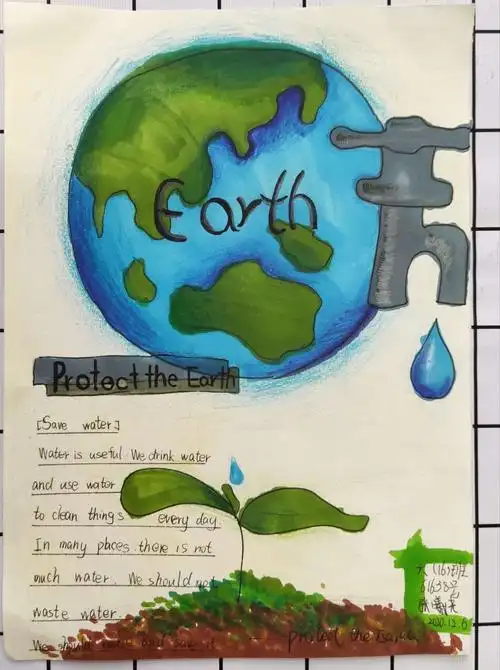 Earth
Protect the Earth
[Save water]
Water is useful We drink water
and use water
to clean things every day.
In many places there is not
much water. We should not
waste water.
We should and save it
protect the Earth
六(16)班
61638号
2020.12.6